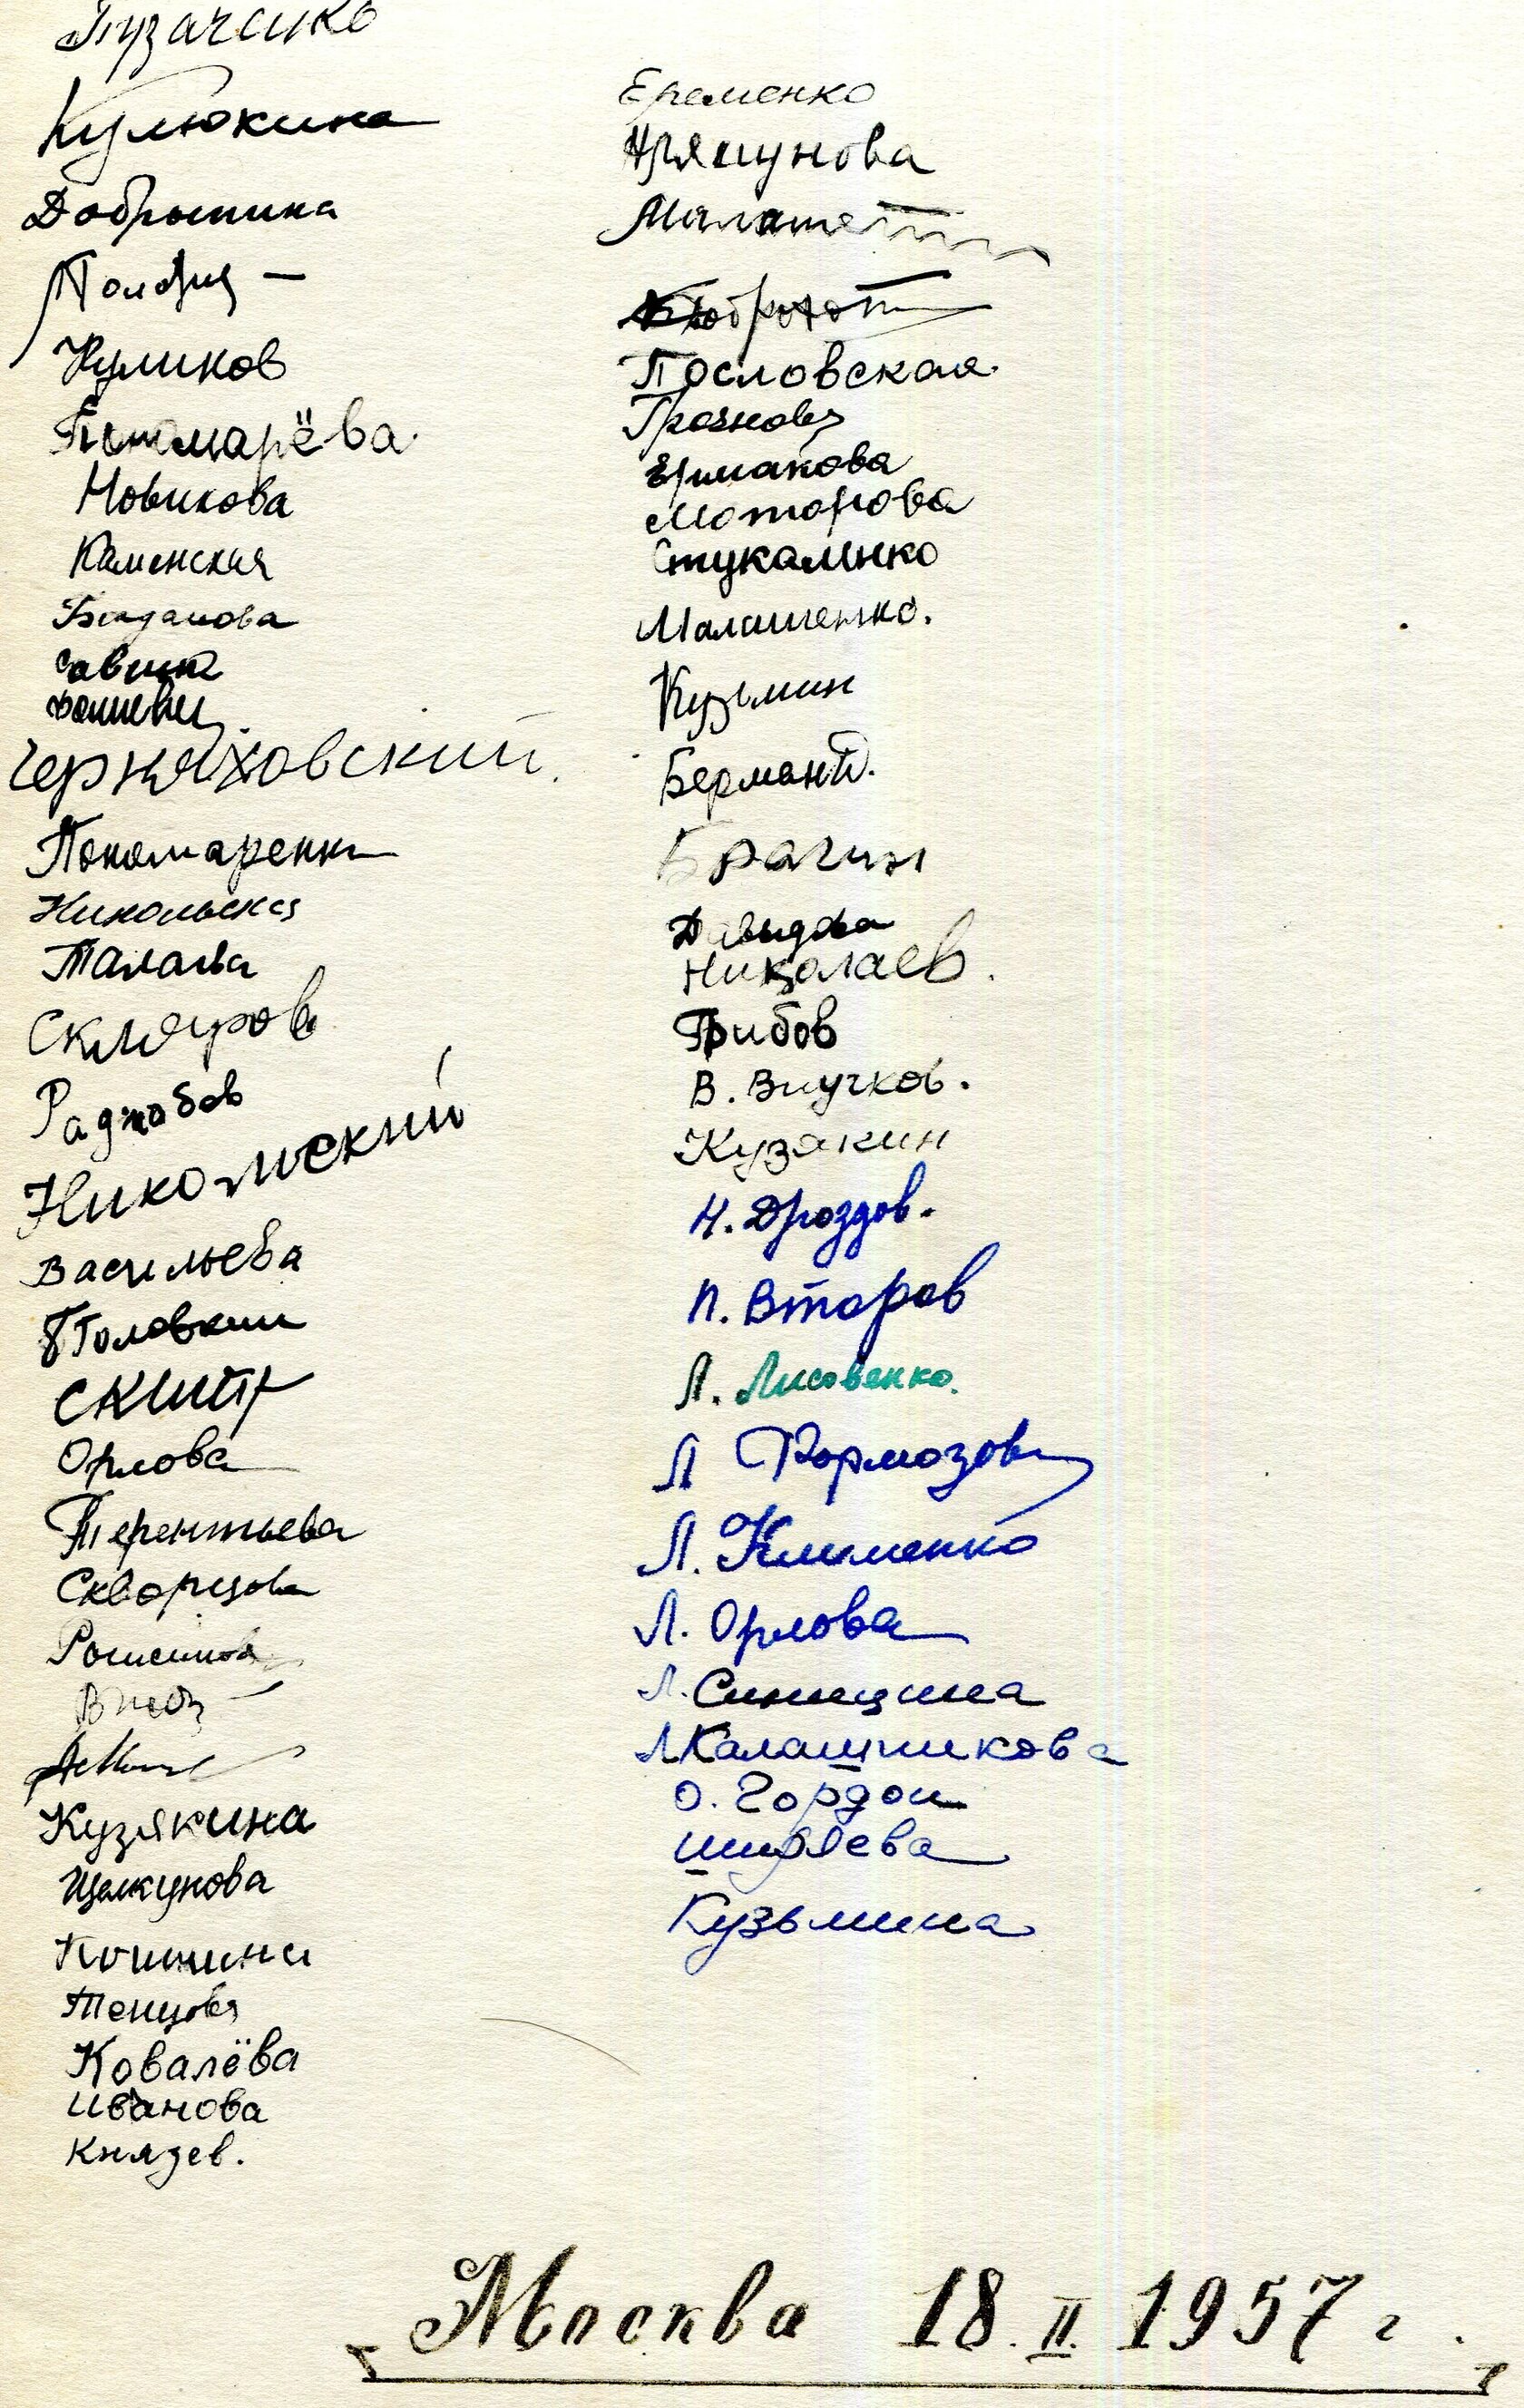 Пузаченко
Кулюкина
Добрынина
Куликов
Пономарёва.
Новикова
Каменская
Богданова
Савина
Черняховский.
Пономаренко
Никольская
Скляров
Раджабов
Никольский
Васильева
Головкин
Орлова
Терентьева
Скворцова
Кузякина
Щелкунова
Ковалёва
Иванова
Князев.
Еременко
Пословская.
Грознова
Ермакова
Моторова
Стукаленко
Малашенко.
Кузьмин
Берман
Брагин
Давыдова
Николаев.
Грибов
В. Внучков.
Кузякин
Н. Дроздов.
П. Второв
Л. Лисовенко.
Л Формозов
Л. Клименко
Л. Орлова
Л. Синицина
Л Калашникова
О. Гордон
Ширяева
Кузьмина
Москва 18. II. 1957 г.